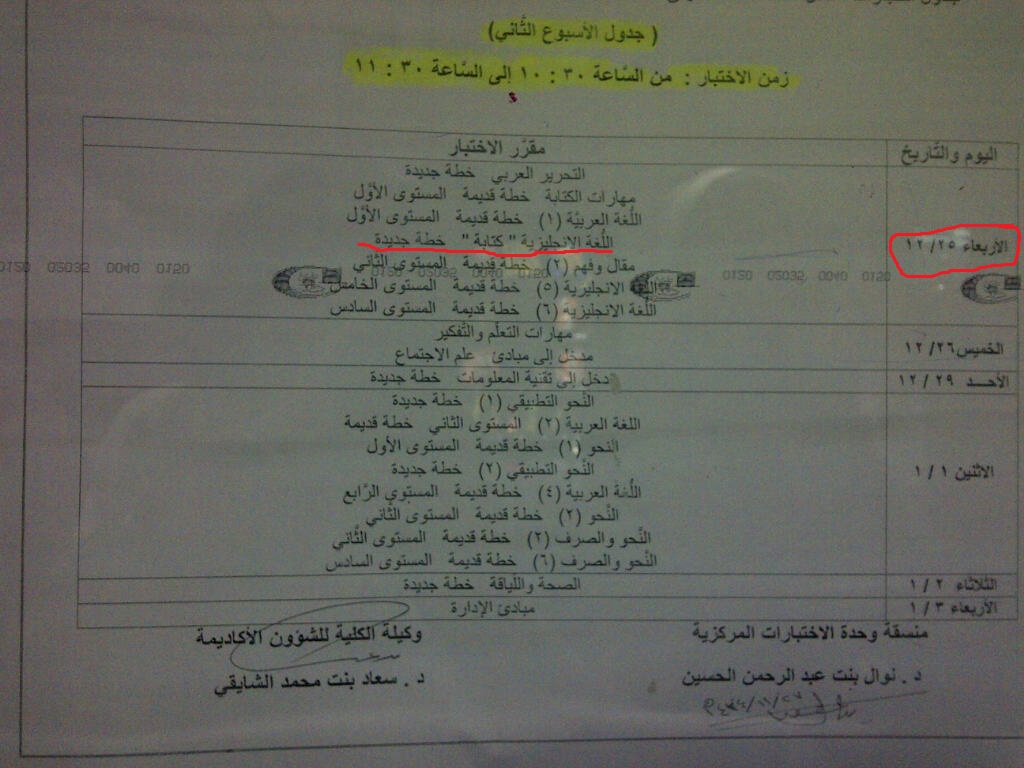 ( جدول الأسبوع الثَّاني)
زمن الاختبار : من السَّاعة ٣٠ : ١٠ إلى السَّاعة ٣٠ : ١١
اليوم والتَّاريخ مقرَّر الاختبار
التحرير العربي خطة جديدة
مهارات الكتابة خطة قديمة المستوى الأوَّل
اللُّغة العربيَّة (١) خطة قديمة المستوى الأوَّل
الأربعاء ١٢/٢٥ اللُّغة الانجليزية " كتابة " خطة جديدة
مقال وفهم (٢) خطة قديمة المستوى الثاني
0120 02032 0040 0150
اللغة الانجليزية (٥) خطة قديمة المستوى الخامس
اللُّغة الانجليزية (٦) خطة قديمة المستوى السادس
مهارات التعلّم والتَّفكير
الخميس ١٢/٢٦ مدخل إلى مبادئ علم الاجتماع
الأحـــد ١٢/٢٩ دخل إلى تقنية المعلومات خطة جديدة
النَّحو التطبيقي (١) خطة جديدة
اللغة العربية (٢) المستوى الثاني خطة قديمة
النحو (١) خطة قديمة المستوى الأول
الاثنين ١/١ النَّحو التطبيقي (٢) خطة جديدة
اللُّغة العربية (٤) خطة قديمة المستوى الرَّابع
النَّحو (٢) خطة قديمة المستوى الثَّاني
النَّحو والصرف (٢) خطة قديمة المستوى الثَّاني
النَّحو والصرف (٦) خطة قديمة المستوى السادس
الثلاثاء ١/٢ الصحة واللِّياقة خطة جديدة
الأربعاء ١/٣ مبادئ الإدارة
منسقة وحدة الاختبارات المركزية وكيلة الكلية للشؤون الأكاديمة
د . نوال بنت عبد الرحمن الحسين د . سعاد بنت محمد الشايقي